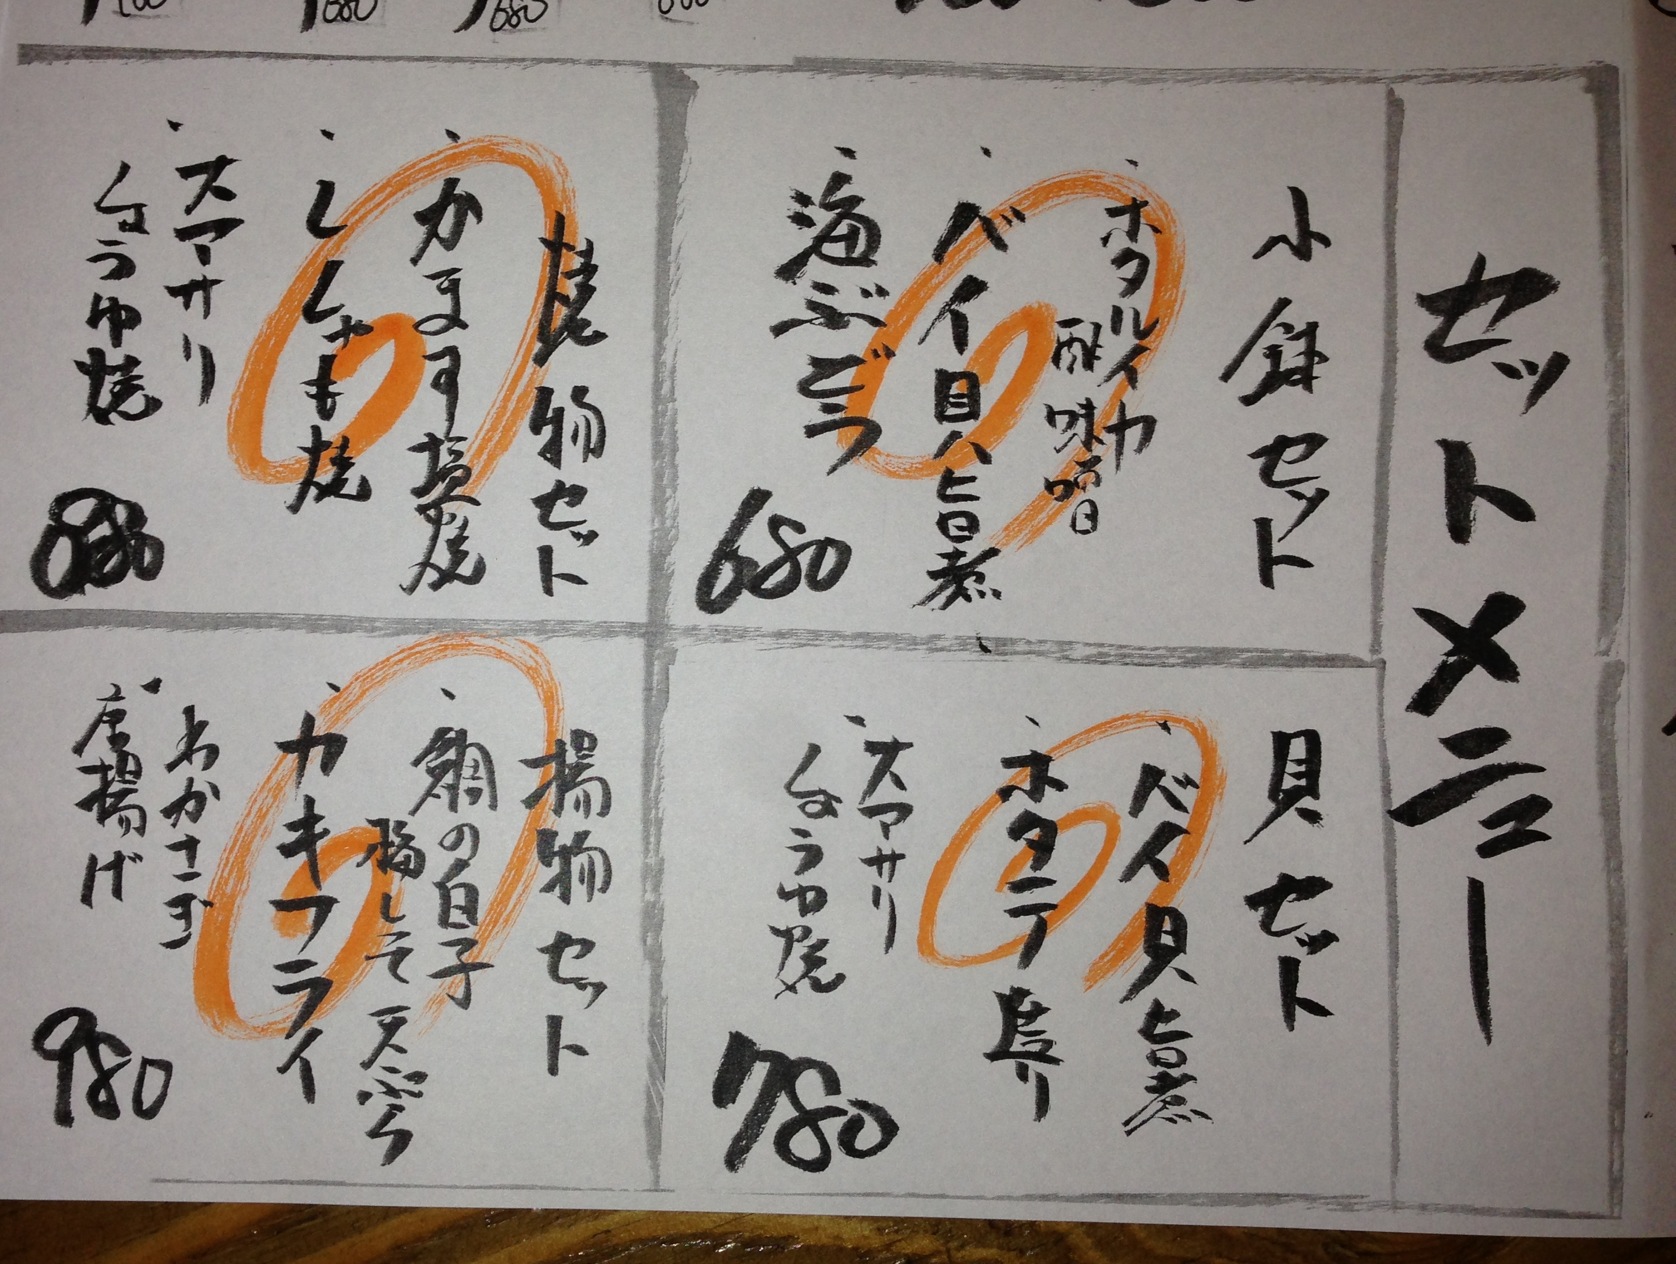 セットメニュー
小鉢セット
ホタルイカ
酢味噌
バイ貝旨煮
海ぶどう
680
貝セット
バイ貝旨煮
ホタテ造り
大アサリ
しょうゆ焼
780
焼物セット
かます塩焼
ししゃも焼
大アサリ
しょうゆ焼
揚物セット
鯛の白子
天ぷら
カキフライ
わかさぎ
唐揚げ
980